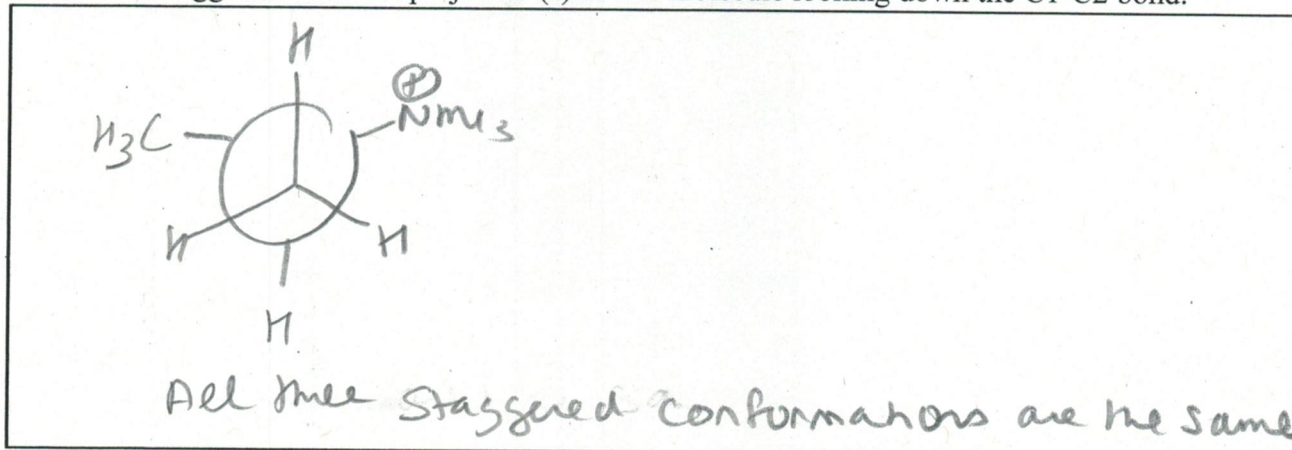 H
⊕
H3C NMe3
H H
H
All three staggered conformations are the same